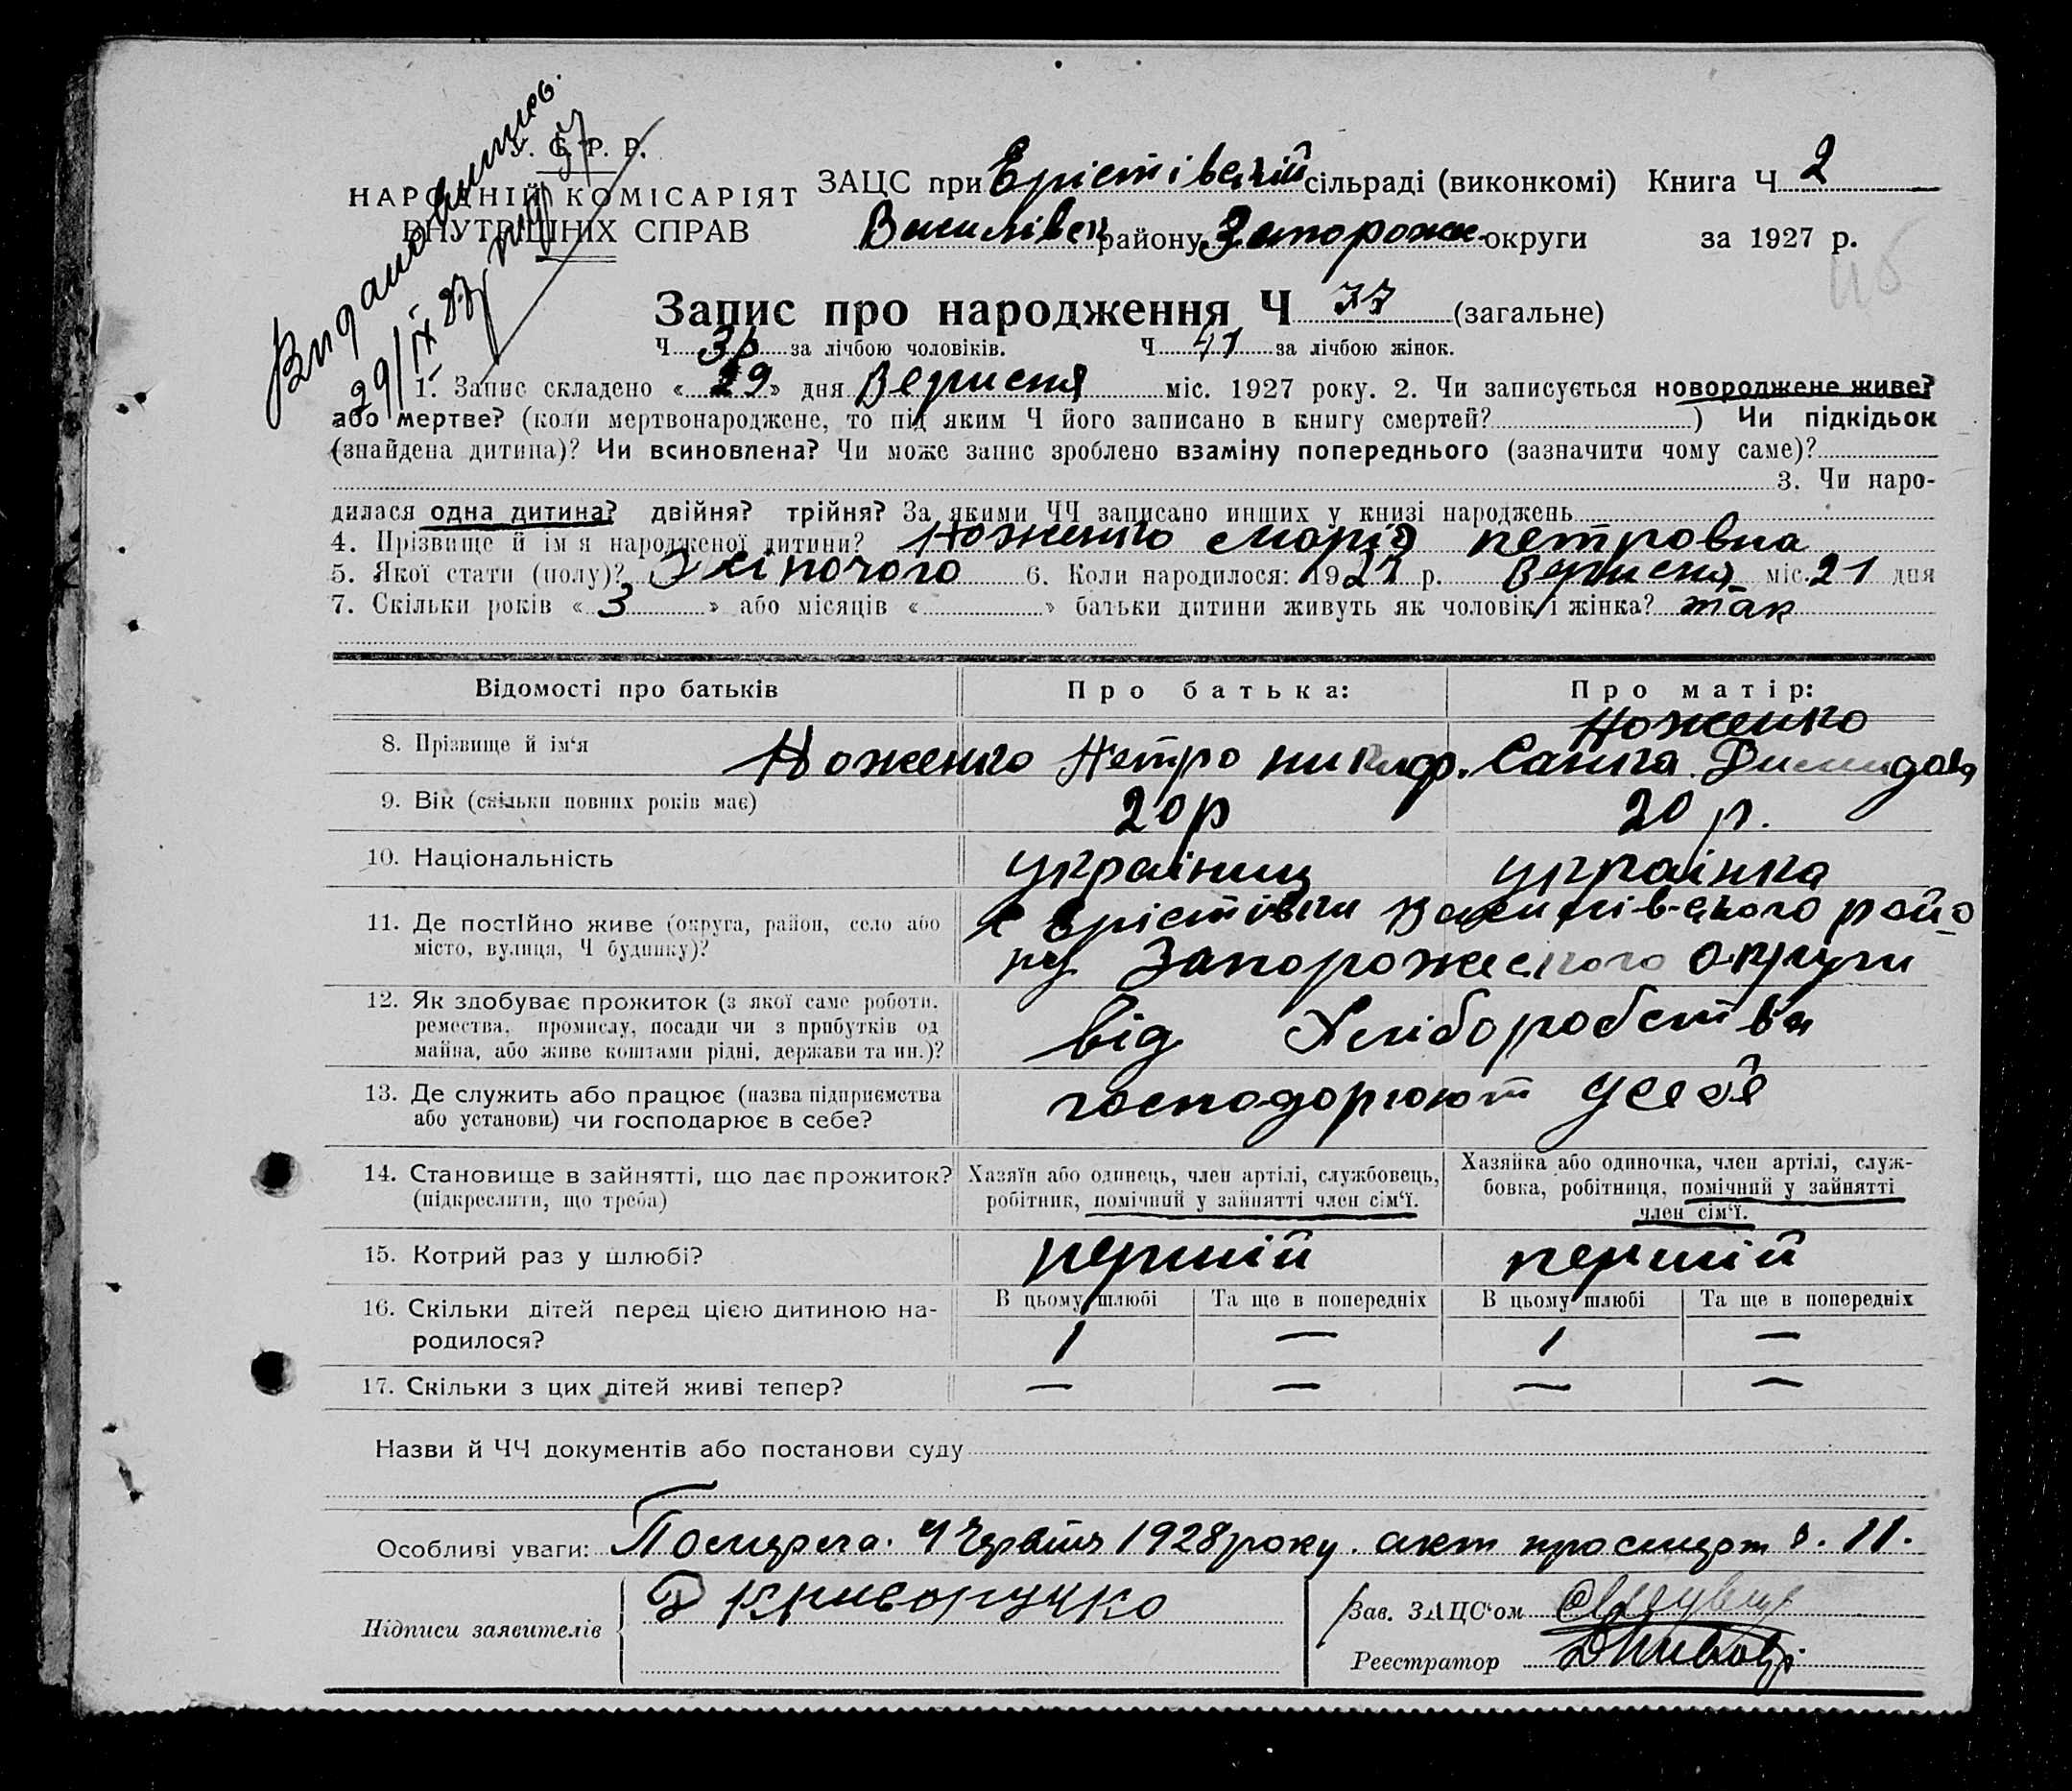 Видано виписъ.
29/IX 27
У. С. Р. Р.
НАРОДНІЙ КОМІСАРІЯТ
ВНУТРІШНІХ СПРАВ
ЗАЦС при Ерістівській сільраді (виконкомі) Книга Ч 2
Василівськ району Запорожс. округи за 1927 р.
Запис про народження Ч 77 (загальне)
Ч 36 за лічбою чоловіків. Ч 41 за лічбою жінок.
1. Запис складено « 29 » дня Вернсня міс. 1927 року. 2. Чи записується новороджене живе?
або мертве? (коли мертвонароджене, то під яким Ч його записано в книгу смертей? ) Чи підкідьок
(знайдена дитина)? Чи всиновлена? Чи може запис зроблено взаміну попереднього (зазначити чому саме)?
3. Чи наро-
дилася одна дитина? двійня? трійня? За якими ЧЧ записано инших у книзі народжень
4. Прізвище й ім'я народженої дитини? Ноженко Марія петровна
5. Якої стати (полу)? Жіночого 6. Коли народилося: 1927 р. Вернсня міс. 21 дня
7. Скільки років « 3 » або місяців « » батьки дитини живуть як чоловік і жінка? так
Відомості про батьків Про батька: Про матір:
Ноженко
8. Прізвище й ім'я Ноженко Петро никиф. Санка
9. Вік (скільки повних років має) 20р 20 р.
10. Національність українец українка
11. Де постійно живе (округа, район, село або с Ерістівки Василів-ського райо
місто, вулиця, Ч будинку)? ну Запорожського округи
12. Як здобуває прожиток (з якої саме роботи,
ремества, промислу, посади чи з прибутків од від Хліборобства
майна, або живе коштами рідні, держави та ин.)?
13. Де служить або працює (назва підприємства господорюют усебе
або установи) чи господарює в себе?
14. Становище в зайнятті, що дає прожиток? Хазяїн або одинець, член артілі, службовець, Хазяйка або одиночка, член артілі, служ-
(підкреслити, що треба) робітник, помічний у зайнятті член сім'ї. бовка, робітниця, помічний у зайнятті
член сім'ї.
15. Котрий раз у шлюбі? першій першій
16. Скільки дітей перед цією дитиною на- В цьому шлюбі Та ще в попередніх В цьому шлюбі Та ще в попередніх
родилося? 1 — 1 —
17. Скільки з цих дітей живі тепер? — — — —
Назви й ЧЧ документів або постанови суду
Особливі уваги: Померла. 4 Червня 1928 року. акт про смерт з. 11.
Підписи заявителів Д Криворучко Зав. ЗАЦС'ом
Реєстратор